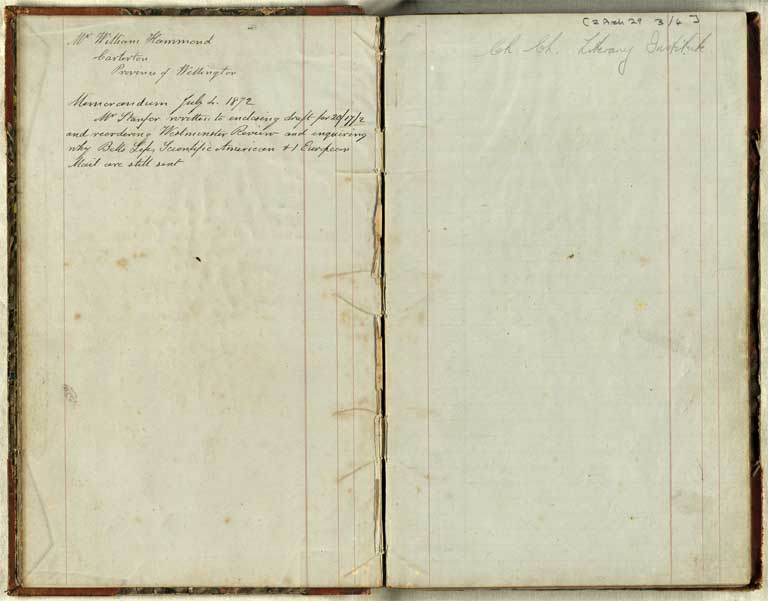 Mr William Hammond
Carterton
Province of Wellington
Memorandum July 4. 1872
Mr Stanfor written to enclosing draft for 20/17/2
and reordering Westminster Review and enquiring
why Bells Life, Scientific American & 1 European
Mail are still sent
[2 Arch 29 3/6]
Ch Ch. Literary Institute